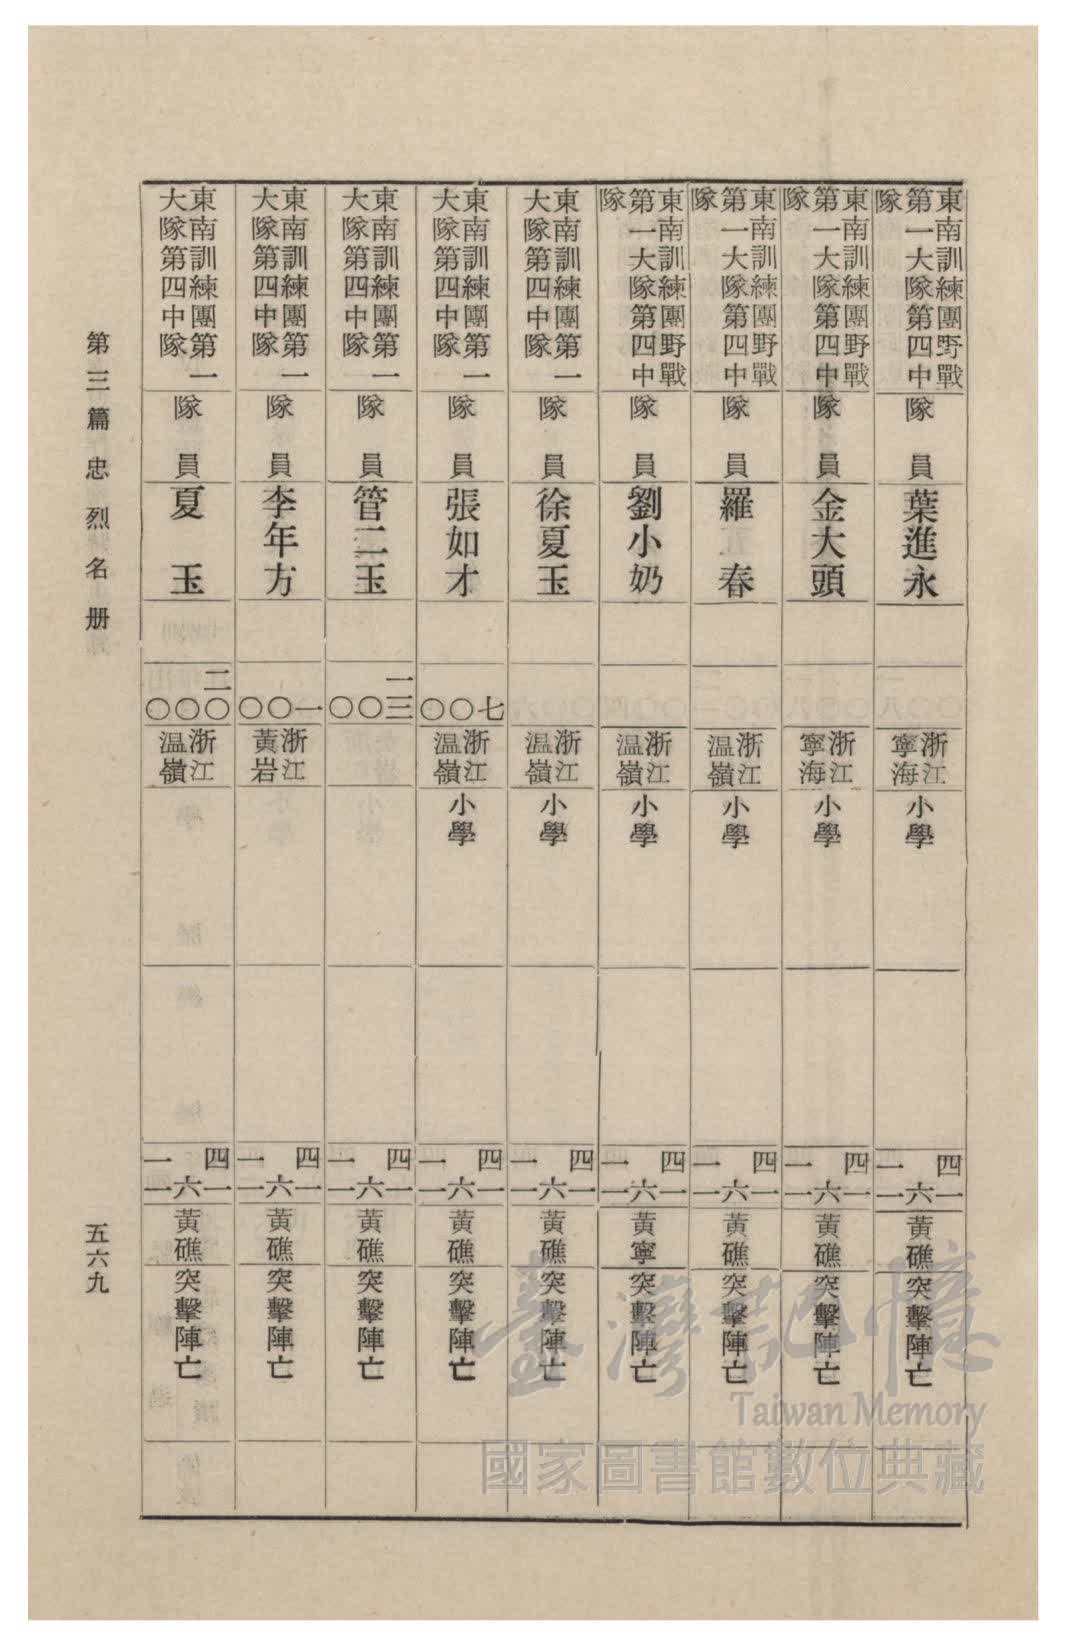 東南訓練團野戰
第一大隊第四中
隊
隊員
葉進永
浙江
寧海
小學
四一
六
一一
黃礁
突擊陣亡
東南訓練團野戰
第一大隊第四中
隊
隊員
金大頭
浙江
寧海
小學
四一
六
一一
黃礁
突擊陣亡
東南訓練團野戰
第一大隊第四中
隊
隊員
羅春
浙江
溫嶺
小學
四一
六
一一
黃礁
突擊陣亡
東南訓練團野戰
第一大隊第四中
隊
隊員
劉小奶
浙江
溫嶺
小學
四一
六
一一
黃寧
突擊陣亡
東南訓練團第一
大隊第四中隊
隊員
徐夏玉
浙江
溫嶺
小學
四一
六
一一
黃礁
突擊陣亡
東南訓練團第一
大隊第四中隊
隊員
張如才
七
〇
〇
浙江
溫嶺
小學
四一
六
一一
黃礁
突擊陣亡
東南訓練團第一
大隊第四中隊
隊員
管二玉
一三
〇
〇
四一
六
一一
黃礁
突擊陣亡
東南訓練團第一
大隊第四中隊
隊員
李年方
一
〇
〇
浙江
黃岩
四一
六
一一
黃礁
突擊陣亡
東南訓練團第一
大隊第四中隊
隊員
夏玉
二〇
〇
〇
浙江
溫嶺
四一
六
一一
黃礁
突擊陣亡
第三篇 忠烈名册
五六九
臺灣記憶
Taiwan Memory
國家圖書館數位典藏